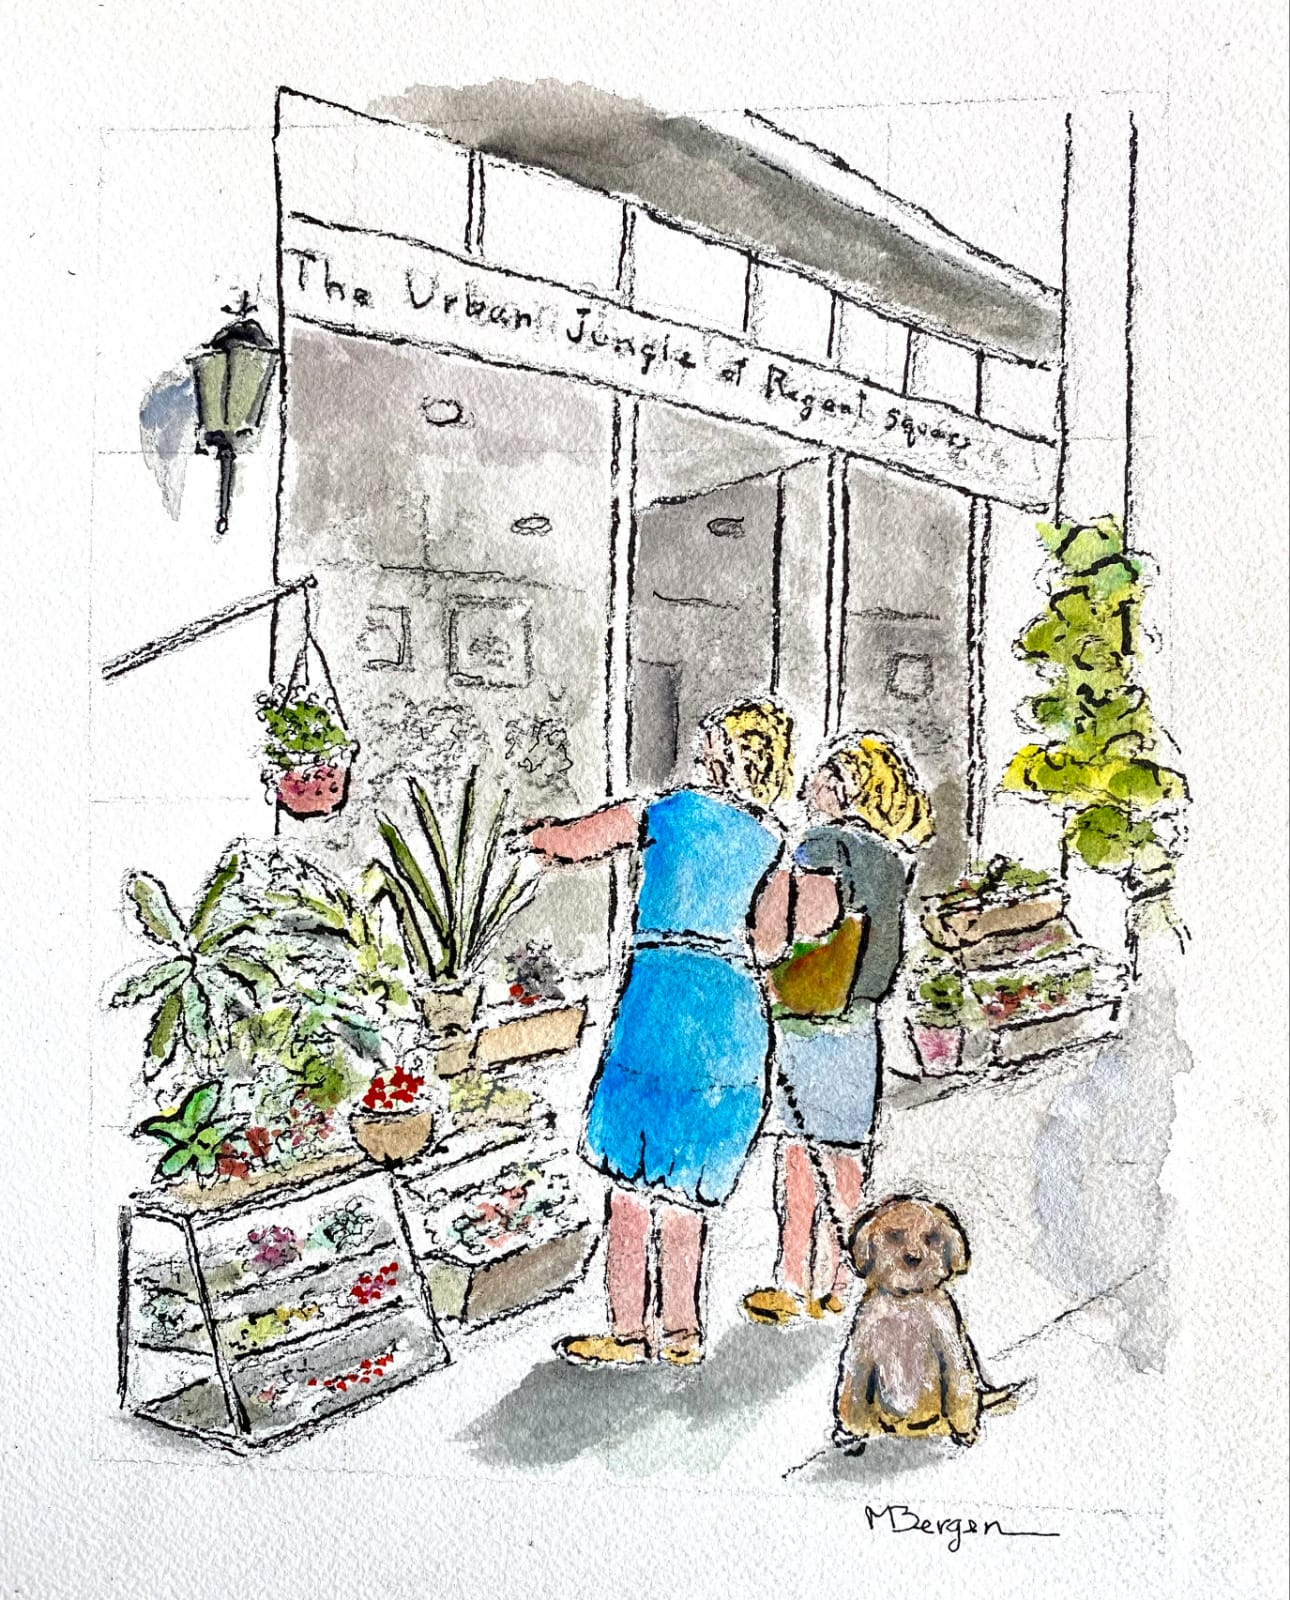 The Urban Jungle at Regent square
MBergen